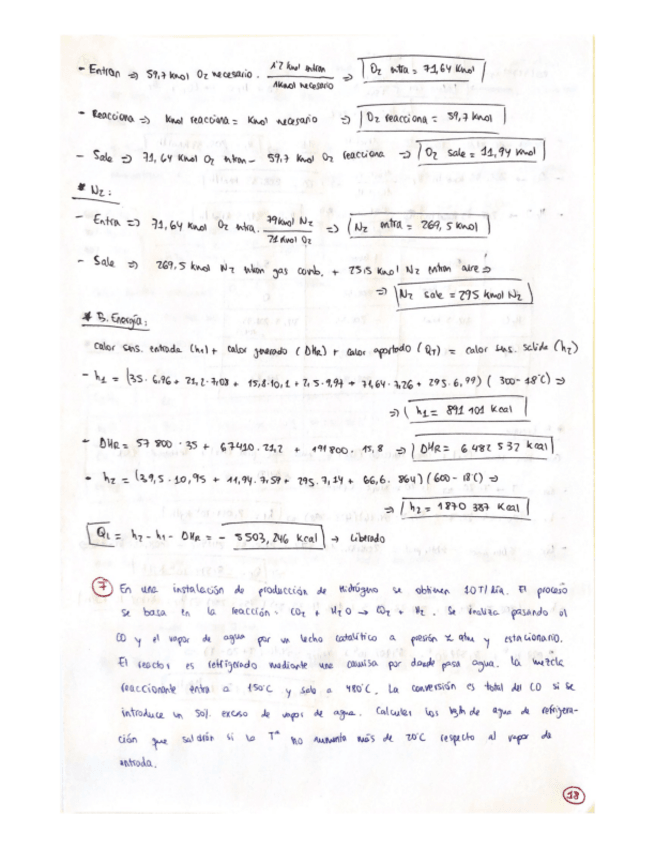 - Entran => 59,7 kmol O2 necesario . 1'2 kmol entran / 1 kmol necesario => O2 entra = 71,64 kmol
- Reacciona => kmol reacciona = kmol necesario => O2 reacciona = 59,7 kmol
- Sale => 71,64 kmol O2 entran - 59,7 kmol O2 reacciona => O2 sale = 11,94 kmol
* N2:
- Entra => 71,64 kmol O2 entra . 79 kmol N2 / 21 kmol O2 => N2 entra = 269,5 kmol
- Sale => 269,5 kmol N2 entran gas comb. + 25,5 kmol N2 entran aire =>
=> N2 sale = 295 kmol N2
* B. Energía:
calor sens. entrada (h1) + calor generado (DHR) + calor aportado (QT) = calor sens. salida (h2)
- h1 = (35 · 6,96 + 21,2 · 7,08 + 15,8 · 10,1 + 2,5 · 9,97 + 71,64 · 7,26 + 295 · 6,99) (300 - 18°C) =>
=> h1 = 891 101 kcal
- DHR = 57 800 · 35 + 67410 · 21,2 + 191800 · 15,8 => DHR = 6 482 532 kcal
- h2 = (39,5 · 10,95 + 11,94 · 7,59 + 295 · 7,14 + 66,6 · 8,64) (600 - 18°C) =>
=> h2 = 1870 387 kcal
QL = h2 - h1 - DHR = - 5503,246 kcal → Liberado
7 En una instalación de producción de Hidrógeno se obtienen 10T/día. El proceso
se basa en la reacción: CO2 + H2O → CO2 + H2. Se realiza pasando el
CO y el vapor de agua por un lecho catalítico a presión x atm y estacionario.
El reactor es refrigerado mediante una camisa por donde pasa agua. La mezcla
reaccionante entra a 150°C y sale a 480°C. La conversión es total del CO si se
introduce un 50% exceso de vapor de agua. Calcular los kg/h de agua de refrigera-
ción que saldrán si la Tª no aumenta más de 20°C respecto al vapor de
entrada.
18